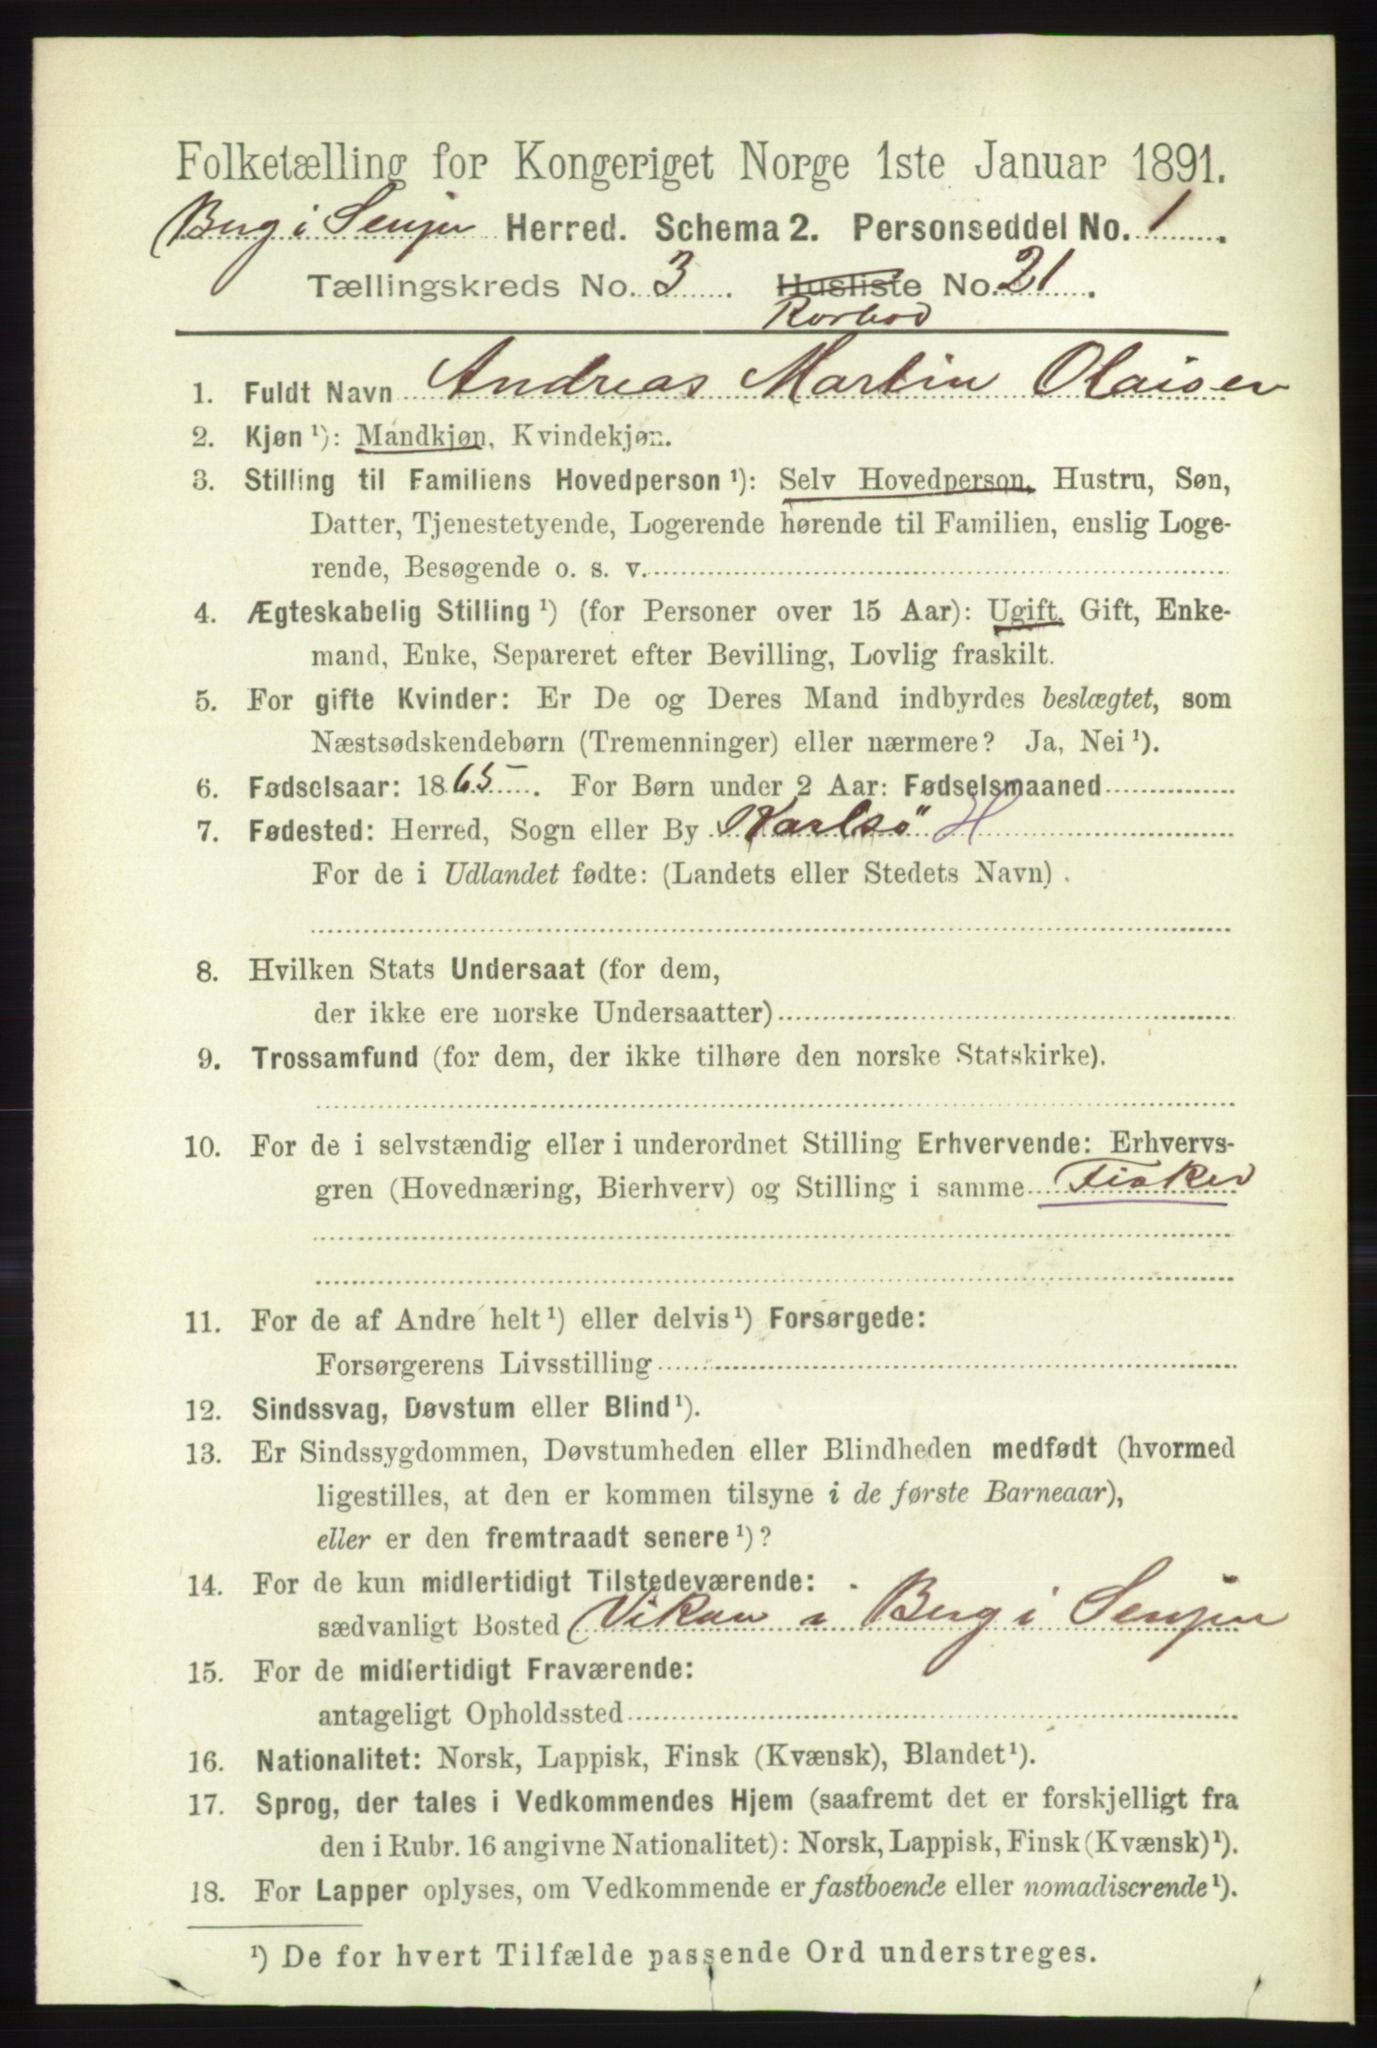 Folketælling for Kongeriget Norge 1ste Januar 1891.
Berg i Senjen Herred. Schema 2. Personseddel No. 1.
Tællingskreds No. 3. Husliste No. 21.
Rorbod
1. Fuldt Navn Andreas Martin Olaisen
2. Kjøn ¹): Mandkjøn, Kvindekjøn.
3. Stilling til Familiens Hovedperson ¹): Selv Hovedperson, Hustru, Søn,
Datter, Tjenestetyende, Logerende hørende til Familien, enslig Loge-
rende, Besøgende o. s. v.
4. Ægteskabelig Stilling ¹) (for Personer over 15 Aar): Ugift, Gift, Enke-
mand, Enke, Separeret efter Bevilling, Lovlig fraskilt.
5. For gifte Kvinder: Er De og Deres Mand indbyrdes beslægtet, som
Næstsødskendebørn (Tremenninger) eller nærmere? Ja, Nei ¹).
6. Fødselsaar: 1865. For Børn under 2 Aar: Fødselsmaaned
7. Fødested: Herred, Sogn eller By Karlsö H
For de i Udlandet fødte: (Landets eller Stedets Navn) .
8. Hvilken Stats Undersaat (for dem,
der ikke ere norske Undersaatter)
9. Trossamfund (for dem, der ikke tilhøre den norske Statskirke).
10. For de i selvstændig eller i underordnet Stilling Erhvervende: Erhvervs-
gren (Hovednæring, Bierhverv) og Stilling i samme Fisker
11. For de af Andre helt ¹) eller delvis ¹) Forsørgede:
Forsørgerens Livsstilling
12. Sindssvag, Døvstum eller Blind ¹).
13. Er Sindssygdommen, Døvstumheden eller Blindheden medfødt (hvormed
ligestilles, at den er kommen tilsyne i de første Barneaar),
eller er den fremtraadt senere ¹)?
14. For de kun midlertidigt Tilstedeværende:
sædvanligt Bosted Vikan i Berg i Senjen
15. For de midlertidigt Fraværende:
antageligt Opholdssted
16. Nationalitet: Norsk, Lappisk, Finsk (Kvænsk), Blandet ¹).
17. Sprog, der tales i Vedkommendes Hjem (saafremt det er forskjelligt fra
den i Rubr. 16 angivne Nationalitet): Norsk, Lappisk, Finsk (Kvænsk) ¹).
18. For Lapper oplyses, om Vedkommende er fastboende eller nomadiserende ¹).
¹) De for hvert Tilfælde passende Ord understreges.